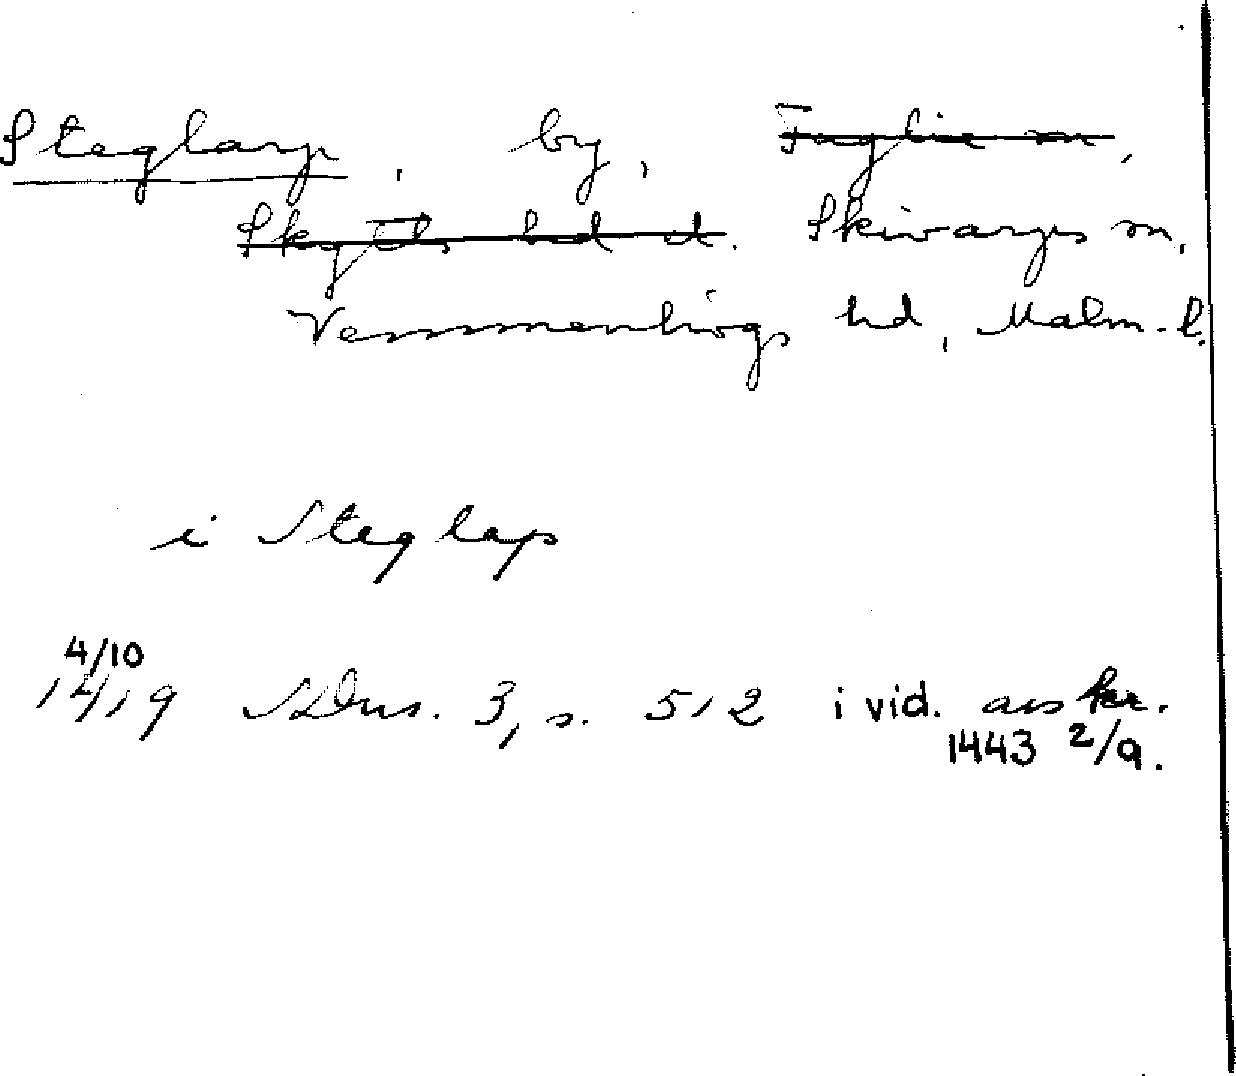 Steglarp, by, Fuglie sn,
Skytts hd d. Skivarps sn,
Vemmenhögs hd, Malm. l.
i Steglap
4/10
1419 SDns. 3, s. 512 i vid. avskr.
1443 2/9.